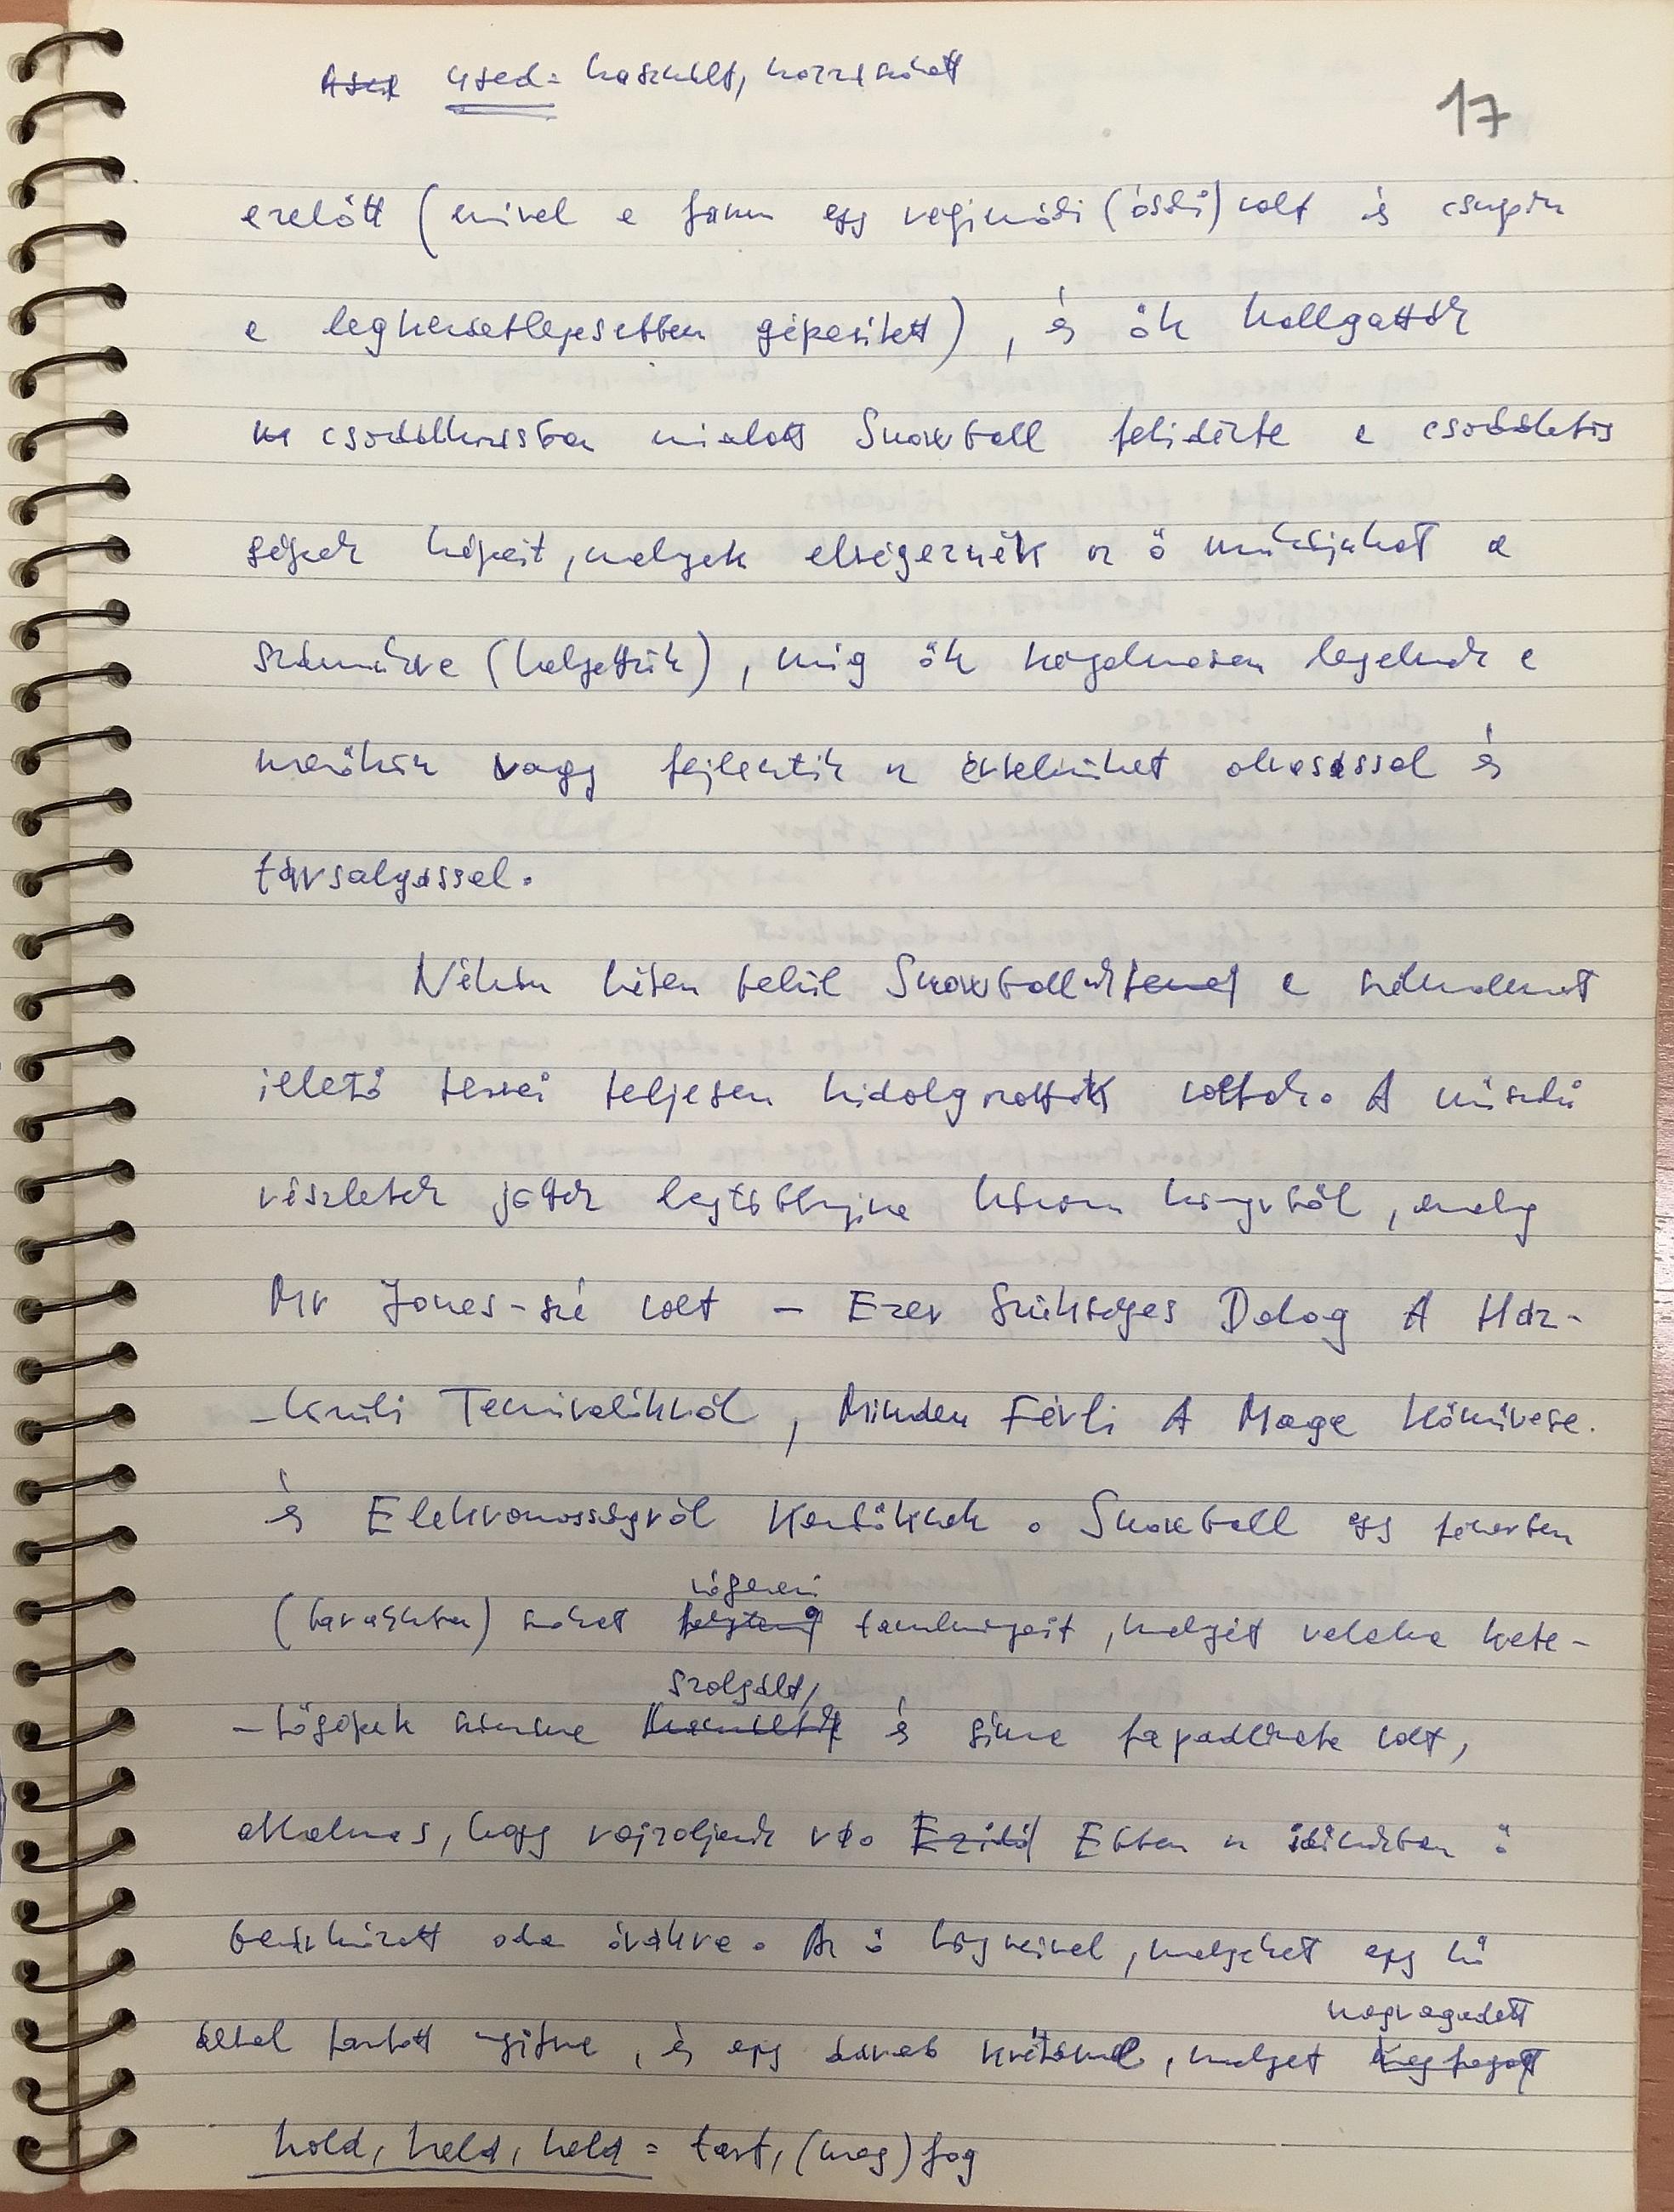 used = használt, hozzászokott
17
ezelőtt (mivel a farm egy régimódi (ósdi) volt és csupán
a legkezdetlegesebben gépesített), és ők hallgatták
csodálkozásban mialatt Snowball felidézte a csodálatos
gépek képeit, melyek elvégeznék az ő munkájukat a
számukra (helyettük), míg ők nyugalmasan legelnek a
mezőkön vagy fejlesztik az értelmüket olvasással és
társalgással.
Néhány héten belül Snowballnak a szélmalmot
illető tervei teljesen kidolgozottak voltak. A műszaki
részletek jöttek legtöbbnyire három könyvből, mely
Mr Jones-szé volt - Ezer Szükséges Dolog A Ház-
-körüli Tennivalókról, Minden Férfi A Maga Kőművese.
és Elektromosságról Kezdőknek. Snowball egy fészerben
végezni
tanulmányait, melyet valaha kelte-
szolgált,
-tőgépek számára és sima fapadlózata volt,
alkalmas, hogy rajzoljanak rá. Ebben az időkörben ő
bezárkózott oda órákra. Az ő könyveivel, melyeket egy kő
megragadott
által tartott nyitva, és egy darab krétával, melyet
hold, held, held = tart, (meg)fog